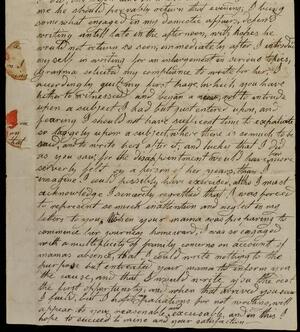 me she should probably return that evening, I being
somewhat engaged in my domestic affairs, defered
writing untill late in the afternoon, with hopes he
would not return so soon, immediately after I introduced
myself in writing for an enlargement on serious topics,
Grandma solicited my compliance to write for her, I
accordingly quit my first page, in which you have
hether to intended and began a new, not to intrude
upon a subject I had but just entered upon, and
fearing I should not have sufficient time to expatiate
so largely upon a subject, where there is so much to be
said, and to write hers after it, and lucky that I did
as you saw, for the disappointment would have
severely felt, by a person of her years, than I
imagine I could possibly have exercised, altho I must
acknowledge I sensibly
to represent so much inattention and neglect in my
letters to you. When your mama was preparing to
commence her journey homeward, I was so engaged
with a multiplicity of family concerns on account of
mamas absence, that I could write nothing to the
purpose but entreated your mama to inform you
the cause, and that I would write you the next
the first opportunity, and when that arrived you saw
I faild, but I hope paliations for not
appear to your reasonable, excusable, and in thus I
hope to succeed to mine and your satisfaction